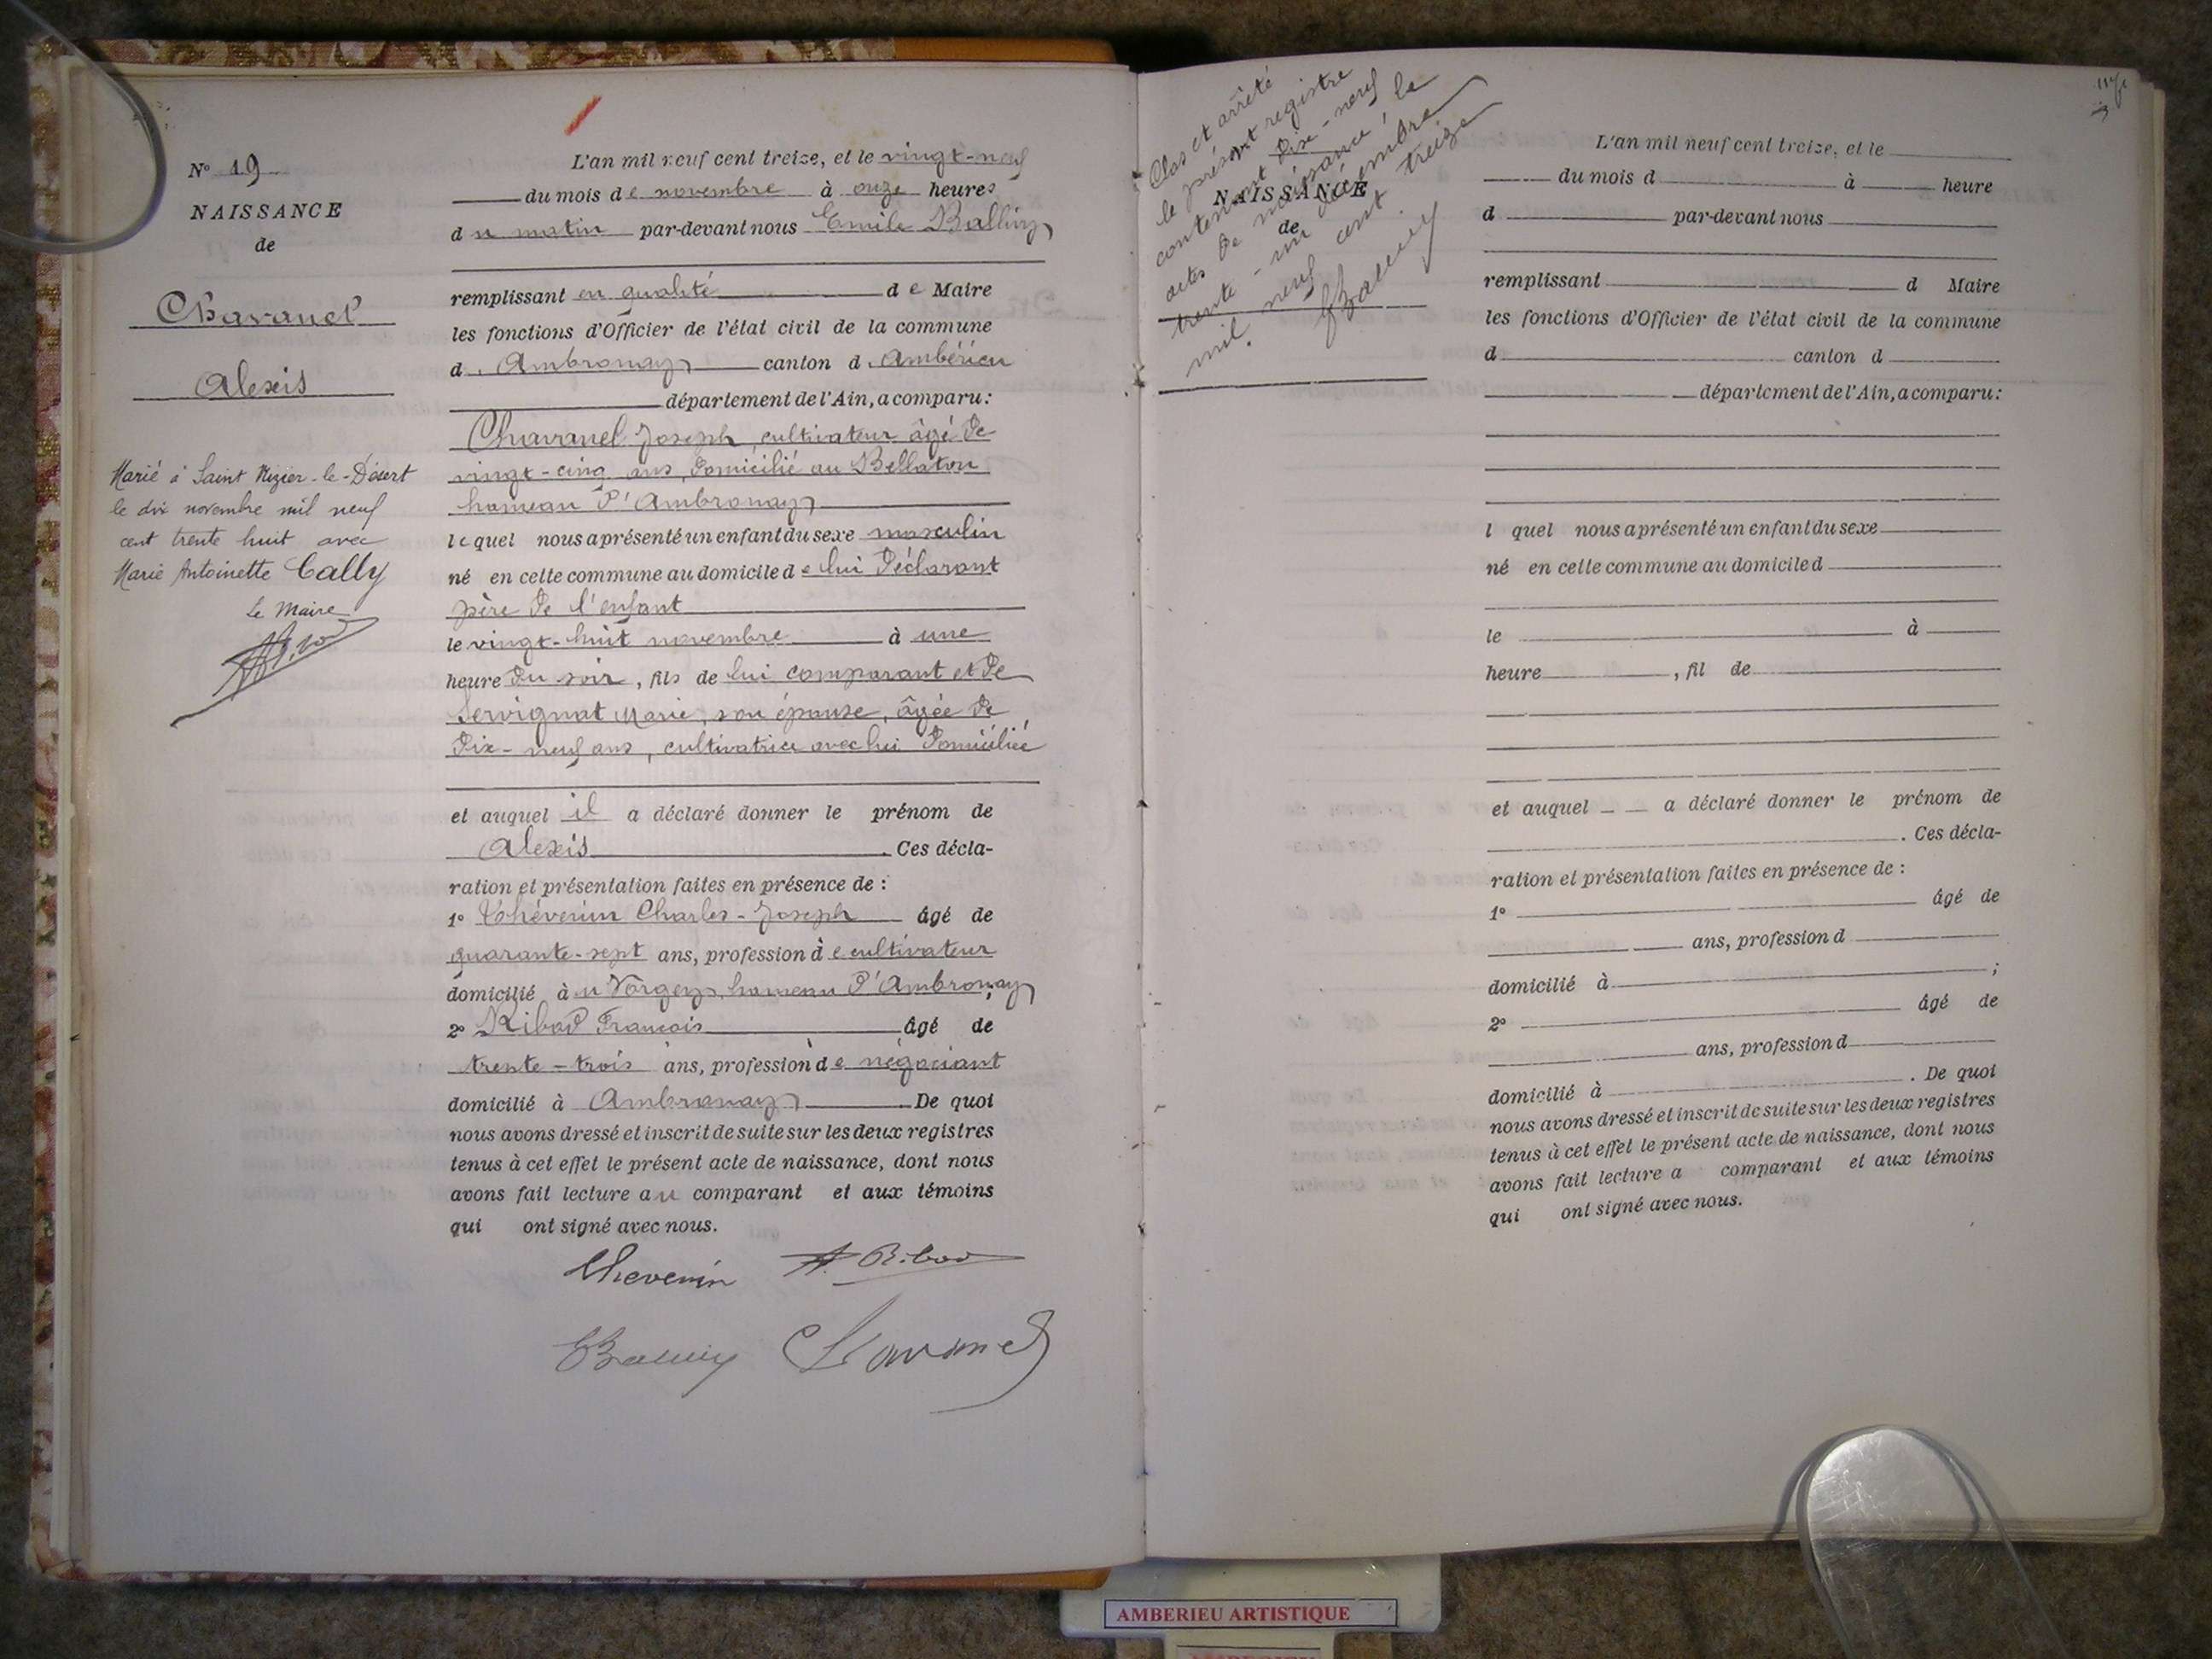 N° 19
NAISSANCE
de
Chavanel
Alexis
Marié à Saint Nizier-le-Désert
le dix novembre mil neuf
cent trente huit avec
Marie Antoinette Cally
Le Maire
L'an mil neuf cent treize, et le vingt-neuf
du mois de novembre à onze heures
du matin par-devant nous Emile
remplissant en qualité de Maire
les fonctions d'Officier de l'état civil de la commune
d'Ambronay canton d'Ambérieu
département de l'Ain, a comparu:
Chavanel Joseph, cultivateur âgé de
vingt-cinq ans, domicilié au Bellaton
hameau d'Ambronay
lequel nous a présenté un enfant du sexe masculin
né en cette commune au domicile de lui déclarant
père de l'enfant
le vingt-huit novembre à une
heure du soir, fils de lui comparant et de
Servignat Marie, son épouse, âgée de
dix-neuf ans, cultivatrice avec lui domiciliée
et auquel il a déclaré donner le prénom de
Alexis. Ces décla-
ration et présentation faites en présence de :
1° Thévenin Charles-Joseph âgé de
quarante-sept ans, profession de cultivateur
domicilié au Vorgey, hameau d'Ambronay;
2° Ribod François âgé de
trente-trois ans, profession de négociant
domicilié à Ambronay De quoi
nous avons dressé et inscrit de suite sur les deux registres
tenus à cet effet le présent acte de naissance, dont nous
avons fait lecture au comparant et aux témoins
qui ont signé avec nous.
Thevenin F. Ribod
Chavanel
Clos et arrêté
le présent registre
contenant dix-neuf
actes de naissance, le
trente-un décembre
mil neuf cent treize
NAISSANCE
de
L'an mil neuf cent treize, et le
du mois d à heure
d par-devant nous
remplissant d Maire
les fonctions d'Officier de l'état civil de la commune
d canton d
département de l'Ain, a comparu:
l quel nous a présenté un enfant du sexe
né en cette commune au domicile d
le à
heure , fil de
et auquel a déclaré donner le prénom de
. Ces décla-
ration et présentation faites en présence de :
1° âgé de
ans, profession d
domicilié à ;
2° âgé de
ans, profession d
domicilié à . De quoi
nous avons dressé et inscrit de suite sur les deux registres
tenus à cet effet le présent acte de naissance, dont nous
avons fait lecture a comparant et aux témoins
qui ont signé avec nous.
AMBERIEU ARTISTIQUE